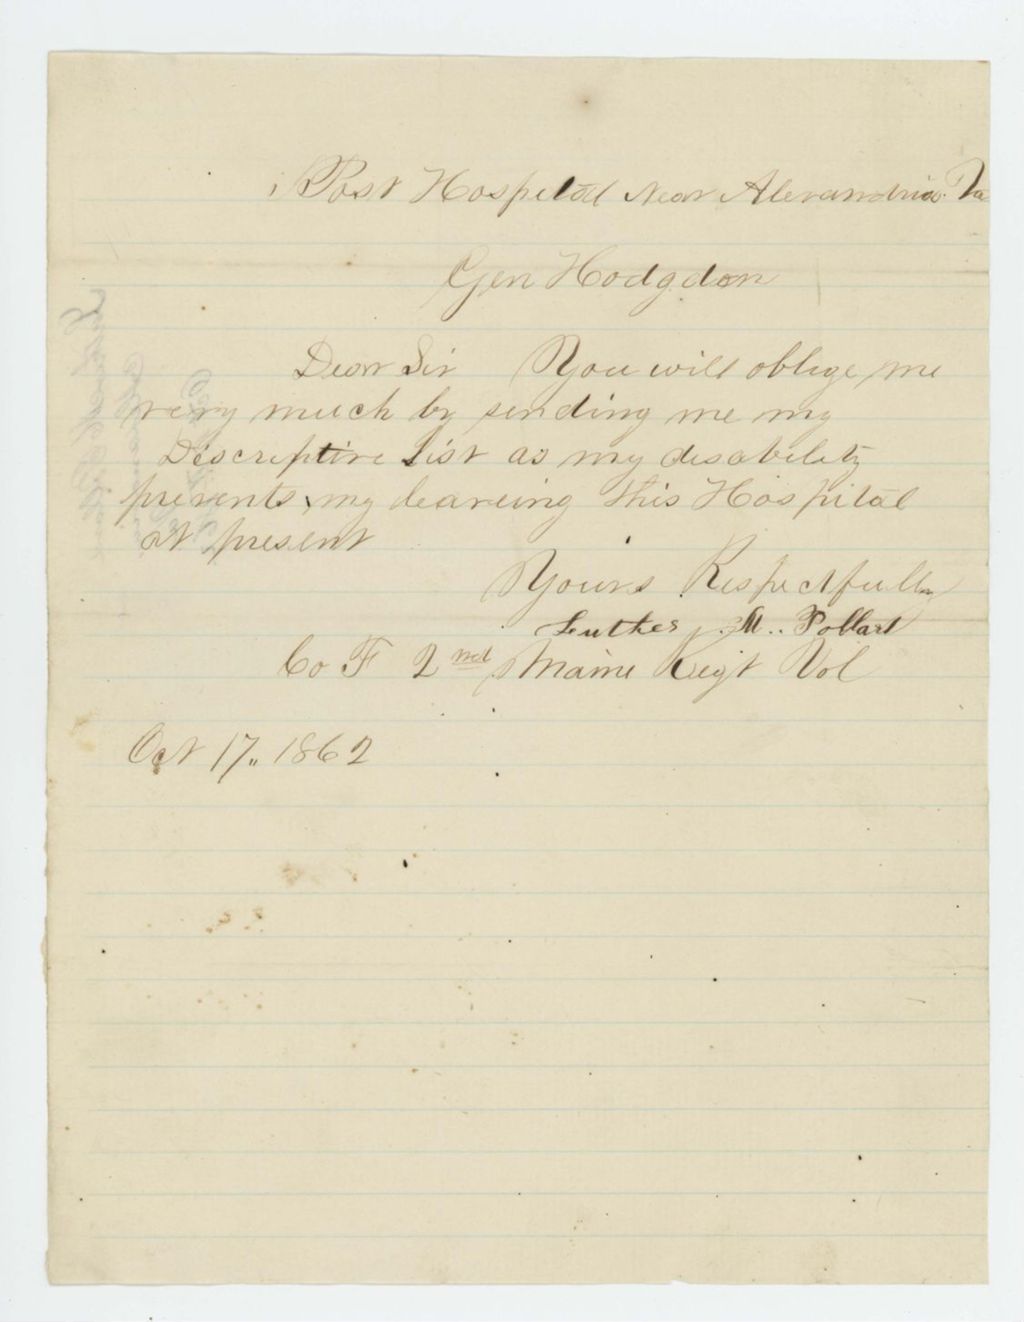 Post Hospital Near Alexandria Va
Gen Hodgdon
Dear Sir You will oblige me
very much by sending me my
Descriptive List as my disability
prevents my leaveing this Hospital
at present
Yours Respectfully
Luther M.. Pollard
Co F 2nd Maine Regt Vol
Oct 17,, 1862